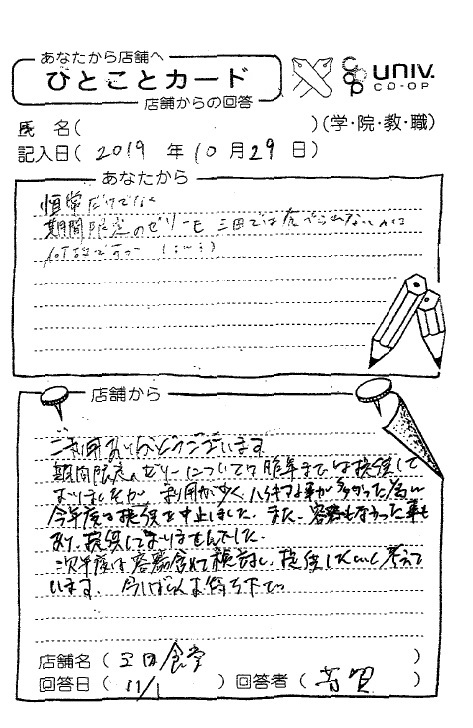 あなたから店舗へ
ひとことカード
店舗からの回答
coop univ. CO-OP
氏 名( )(学・院・教・職)
記入日( 2019 年 10 月 29 日)
あなたから
恒常だけでなく
期間限定のゼリーも三田では食べられないのは
何故ですか
店舗から
ご利用ありがとうございます
期間限定のゼリーについては昨年までは提供して
おりましたが、利用が少く
今年度は提供を中止しました。また、容器もなかった事も
あり、提供しておりませんでした。
次年度は容器含めて検討し、提供したいと考えて
います。今しばらくお待ち下さい
店舗名( 三田食堂 )
回答日( 11/1 ) 回答者( 芳賀 )